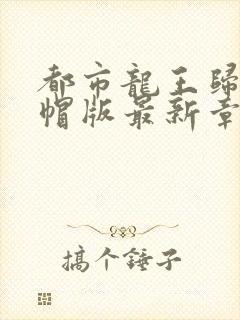 都市龍王歸
帽版最新章
搞个錘子